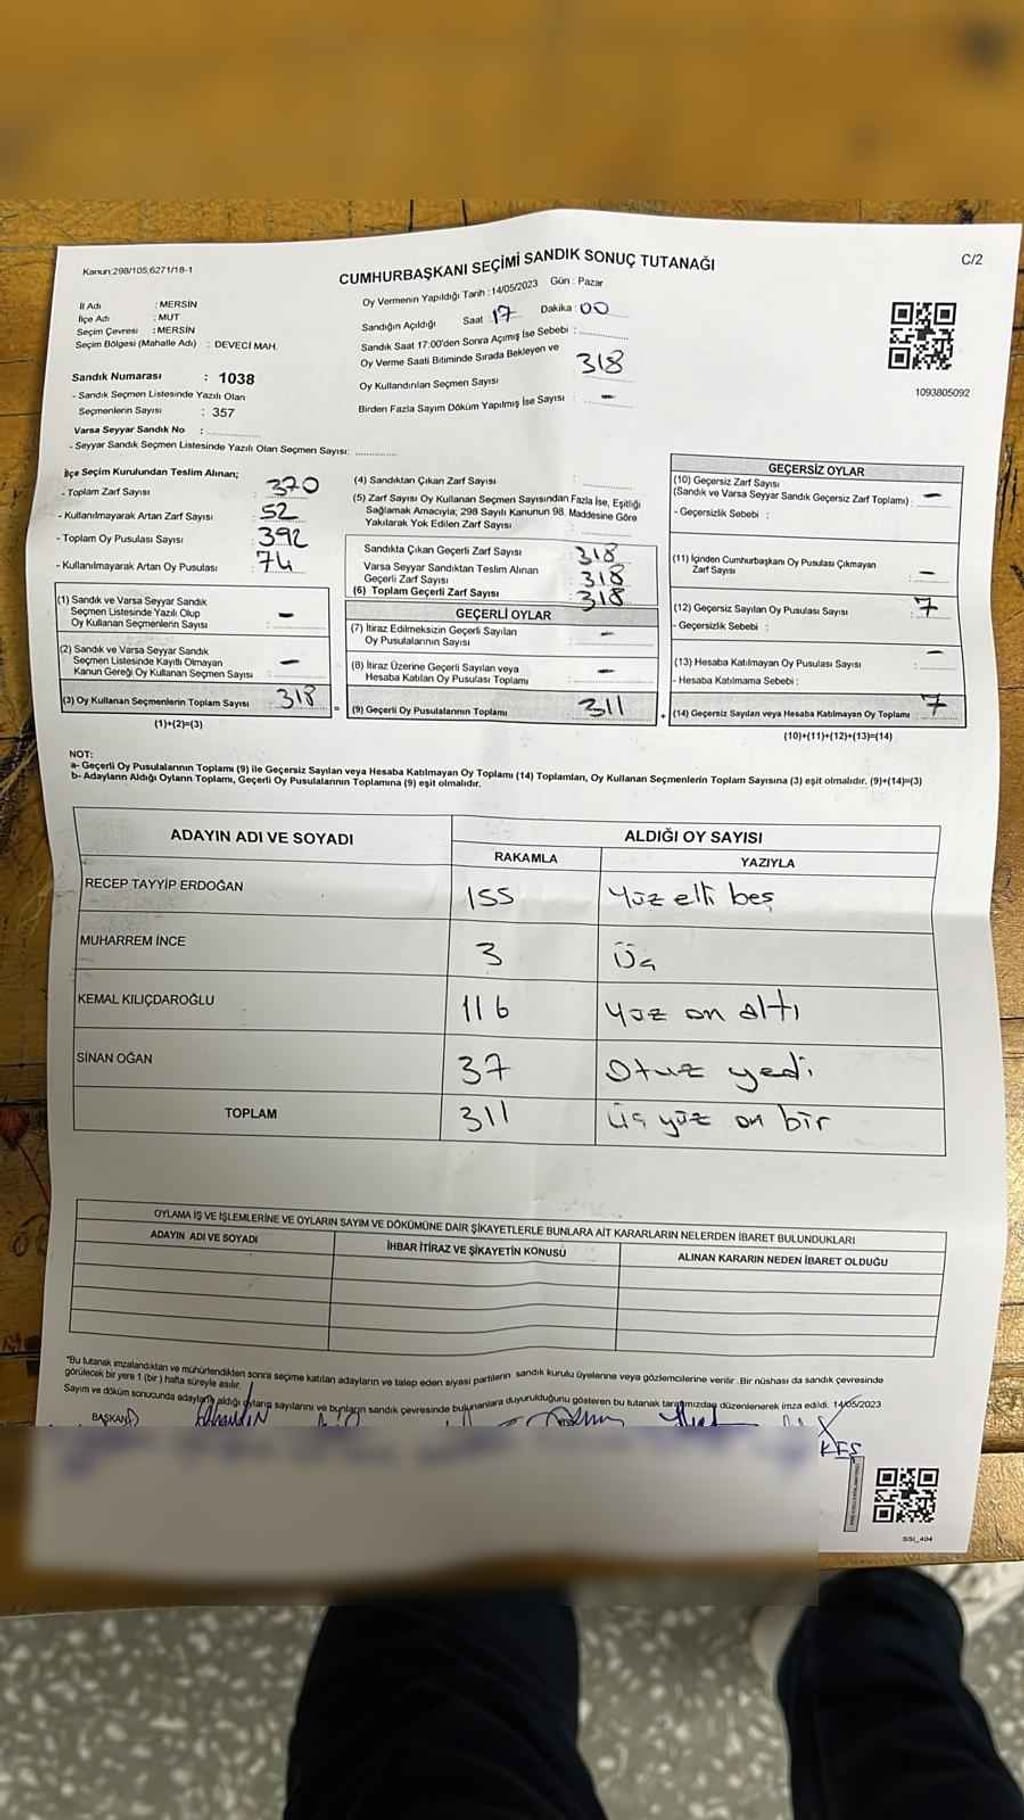 Kanun:298/105,6271/18-1
CUMHURBAŞKANI SEÇİMİ SANDIK SONUÇ TUTANAĞI
C/2
İl Adı : MERSİN
İlçe Adı : MUT
Seçim Çevresi : MERSİN
Seçim Bölgesi (Mahalle Adı) : DEVECİ MAH.
Sandık Numarası : 1038
- Sandık Seçmen Listesinde Yazılı Olan
Seçmenlerin Sayısı : 357
Varsa Seyyar Sandık No :
- Seyyar Sandık Seçmen Listesinde Yazılı Olan Seçmen Sayısı:
Oy Vermenin Yapıldığı Tarih : 14/05/2023 Gün : Pazar
Sandığın Açıldığı Saat 17 Dakika : 00
Sandık Saat 17:00'den Sonra Açımış İse Sebebi :
Oy Verme Saati Bitiminde Sırada Bekleyen ve
Oy Kullandırılan Seçmen Sayısı 318
Birden Fazla Sayım Döküm Yapılmış İse Sayısı : -
1093805092
İlçe Seçim Kurulundan Teslim Alınan;
- Toplam Zarf Sayısı : 370
- Kullanılmayarak Artan Zarf Sayısı : 52
- Toplam Oy Pusulası Sayısı : 392
- Kullanılmayarak Artan Oy Pusulası : 74
(1) Sandık ve Varsa Seyyar Sandık
Seçmen Listesinde Yazılı Olup
Oy Kullanan Seçmenlerin Sayısı : -
(2) Sandık ve Varsa Seyyar Sandık
Seçmen Listesinde Kayıtlı Olmayan
Kanun Gereği Oy Kullanan Seçmen Sayısı : -
(3) Oy Kullanan Seçmenlerin Toplam Sayısı : 318
(1)+(2)=(3)
(4) Sandıktan Çıkan Zarf Sayısı :
(5) Zarf Sayısı Oy Kullanan Seçmen Sayısından Fazla İse, Eşitliği
Sağlamak Amacıyla; 298 Sayılı Kanunun 98. Maddesine Göre
Yakılarak Yok Edilen Zarf Sayısı :
Sandıkta Çıkan Geçerli Zarf Sayısı : 318
Varsa Seyyar Sandıktan Teslim Alınan
Geçerli Zarf Sayısı : 318
(6) Toplam Geçerli Zarf Sayısı : 318
GEÇERLİ OYLAR
(7) İtiraz Edilmeksizin Geçerli Sayılan
Oy Pusulalarının Sayısı : -
(8) İtiraz Üzerine Geçerli Sayılan veya
Hesaba Katılan Oy Pusulası Toplamı : -
= (9) Geçerli Oy Pusulalarının Toplamı : 311
GEÇERSİZ OYLAR
(10) Geçersiz Zarf Sayısı
(Sandık ve Varsa Seyyar Sandık Geçersiz Zarf Toplamı) : -
- Geçersizlik Sebebi :
(11) İçinden Cumhurbaşkanı Oy Pusulası Çıkmayan
Zarf Sayısı : -
(12) Geçersiz Sayılan Oy Pusulası Sayısı : 7
- Geçersizlik Sebebi :
(13) Hesaba Katılmayan Oy Pusulası Sayısı : -
- Hesaba Katılmama Sebebi :
+ (14) Geçersiz Sayılan veya Hesaba Katılmayan Oy Toplamı : 7
(10)+(11)+(12)+(13)=(14)
NOT:
a- Geçerli Oy Pusulalarının Toplamı (9) ile Geçersiz Sayılan veya Hesaba Katılmayan Oy Toplamı (14) Toplamları, Oy Kullanan Seçmenlerin Toplam Sayısına (3) eşit olmalıdır. (9)+(14)=(3)
b- Adayların Aldığı Oyların Toplamı, Geçerli Oy Pusulalarının Toplamına (9) eşit olmalıdır.
ADAYIN ADI VE SOYADI ALDIĞI OY SAYISI
RAKAMLA YAZIYLA
RECEP TAYYİP ERDOĞAN 155 Yüz elli beş
MUHARREM İNCE 3 Üç
KEMAL KILIÇDAROĞLU 116 Yüz on altı
SİNAN OĞAN 37 Otuz yedi
TOPLAM 311 üç yüz on bir
OYLAMA İŞ VE İŞLEMLERİNE VE OYLARIN SAYIM VE DÖKÜMÜNE DAİR ŞİKAYETLERLE BUNLARA AİT KARARLARIN NELERDEN İBARET BULUNDUKLARI
ADAYIN ADI VE SOYADI İHBAR İTİRAZ VE ŞİKAYETİN KONUSU ALINAN KARARIN NEDEN İBARET OLDUĞU
"Bu tutanak imzalandıktan ve mühürlendikten sonra seçime katılan adayların ve talep eden siyasi partilerin sandık kurulu üyelerine veya gözlemcilerine verilir. Bir nüshası da sandık çevresinde
görülecek bir yere 1 (bir) hafta süreyle asılır.
Sayım ve döküm sonucunda adayların aldığı oyların sayılarını ve bunların sandık çevresinde bulunanlara duyurulduğunu gösteren bu tutanak tarafımızdan düzenlenerek imza edildi. 14/05/2023
BAŞKAN
SSI_494